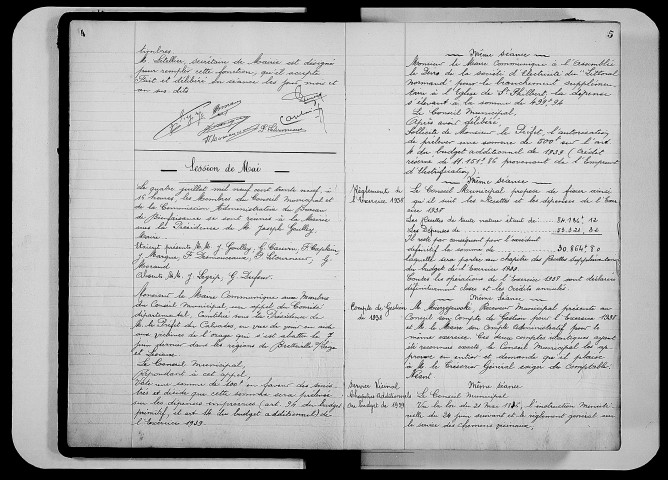 4
timbres.
M. Letellier, secrétaire de Mairie est désigné
pour remplir cette fonction, qu'il accepte
Fait et délibéré en séance les jour mois et
an que dits
Session de Mai
Le quatre juillet mil neuf cent trente neuf, à
15 heures, les Membres du Conseil Municipal et
de la Commission Administrative du Bureau
de Bienfaisance se sont réunis à la Mairie
sous la Présidence de M. Joseph Goulley
Maire
Étaient présents M.M. J. Goulley,
J. Marque, F.
Morand.
Absents M.M. J. Legrip, G. Dufour.
Monsieur le Maire Communique aux Membres
du Conseil Municipal un appel du Comité
départemental, constitué sous la Présidence de
M. le Préfet du Calvados, en vue de venir en aide
aux victimes de l'orage qui s'est abattu le 7
juin dernier dans les régions de Bretteville s/Laize
et Lisieux.
Le Conseil Municipal
Répondant à cet appel,
Vote une somme de 100f en faveur des sinis-
trés et décide que cette somme sera prélevée
sur les dépenses imprévues (art. 96 du budget
primitif, et art 16 du budget additionnel) de
l'Exercice 1939.
5
Même séance
Monsieur le Maire Communique à l'assemblée
le Devis de la société d'Electricité du "Littoral
Normand" pour le branchement supplémen-
taire à l'Eglise de St Philbert, la dépense
s'élevant à la somme de 499f 94
Le Conseil Municipal,
Après avoir délibéré,
Sollicite de Monsieur le Préfet, l'autorisation
de prélever une somme de 500f sur l'art
4 du budget additionnel de 1939 (Crédit
réservé de 11.151f 86 provenant de l'Emprunt
d'Electrification).
Même séance
Règlement de
l'Exercice 1938
Le Conseil Municipal propose de fixer ainsi
qu'il suit les Recettes et les dépenses de l'Exer-
cice 1938
Les Recettes de toute nature étant de: 84.186, 12
Les Dépenses de
Il reste par conséquent pour l'excédent
définitif la somme de 30.864f 80
laquelle sera portée au chapitre des Recettes supplémentaires
du budget de l'Exercice 1939
Toutes les opérations de l'Exercice 1938 sont déclarées
définitivement closes et les crédits annulés
Même séance
Compte de Gestion
de 1938
M. Receveur Municipal présente au
Conseil son Compte de Gestion pour l'Exercice 1938
et M. le Maire son Compte Administratif pour le
même exercice. Ces deux comptes identiques ayant
été reconnus exacts, le Conseil Municipal les ap-
prouve en entier et demande qu'il plaise
à M. le Trésorier Général exiger du Comptable.
Néant
Service Vicinal
Chapitres Additionnels
au budget de 1939
Même séance
Le Conseil Municipal
Vu la loi du 21 Mai 1836, l'instruction Ministé-
rielle du 24 juin suivant et le règlement général sur
le service des chemins vicinaux.